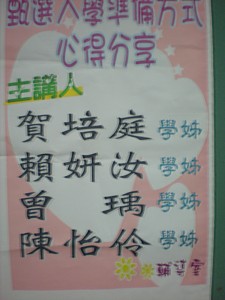 甄選入學準備方式
心得分享
主講人
賀培庭學姊
賴妍汝學姊
曾瑀學姊
陳怡伶學姊
輔導室